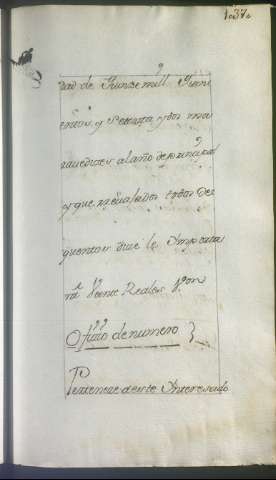 1037.
dad de Quinze mill Quini
entos, y Setenta y dos ma
ravedises al año de prinzipal
y que regulados todos de
quentos dize le Importa
rá Veente Reales Von
Ofizio de numero }
Perteneze a este Interesado